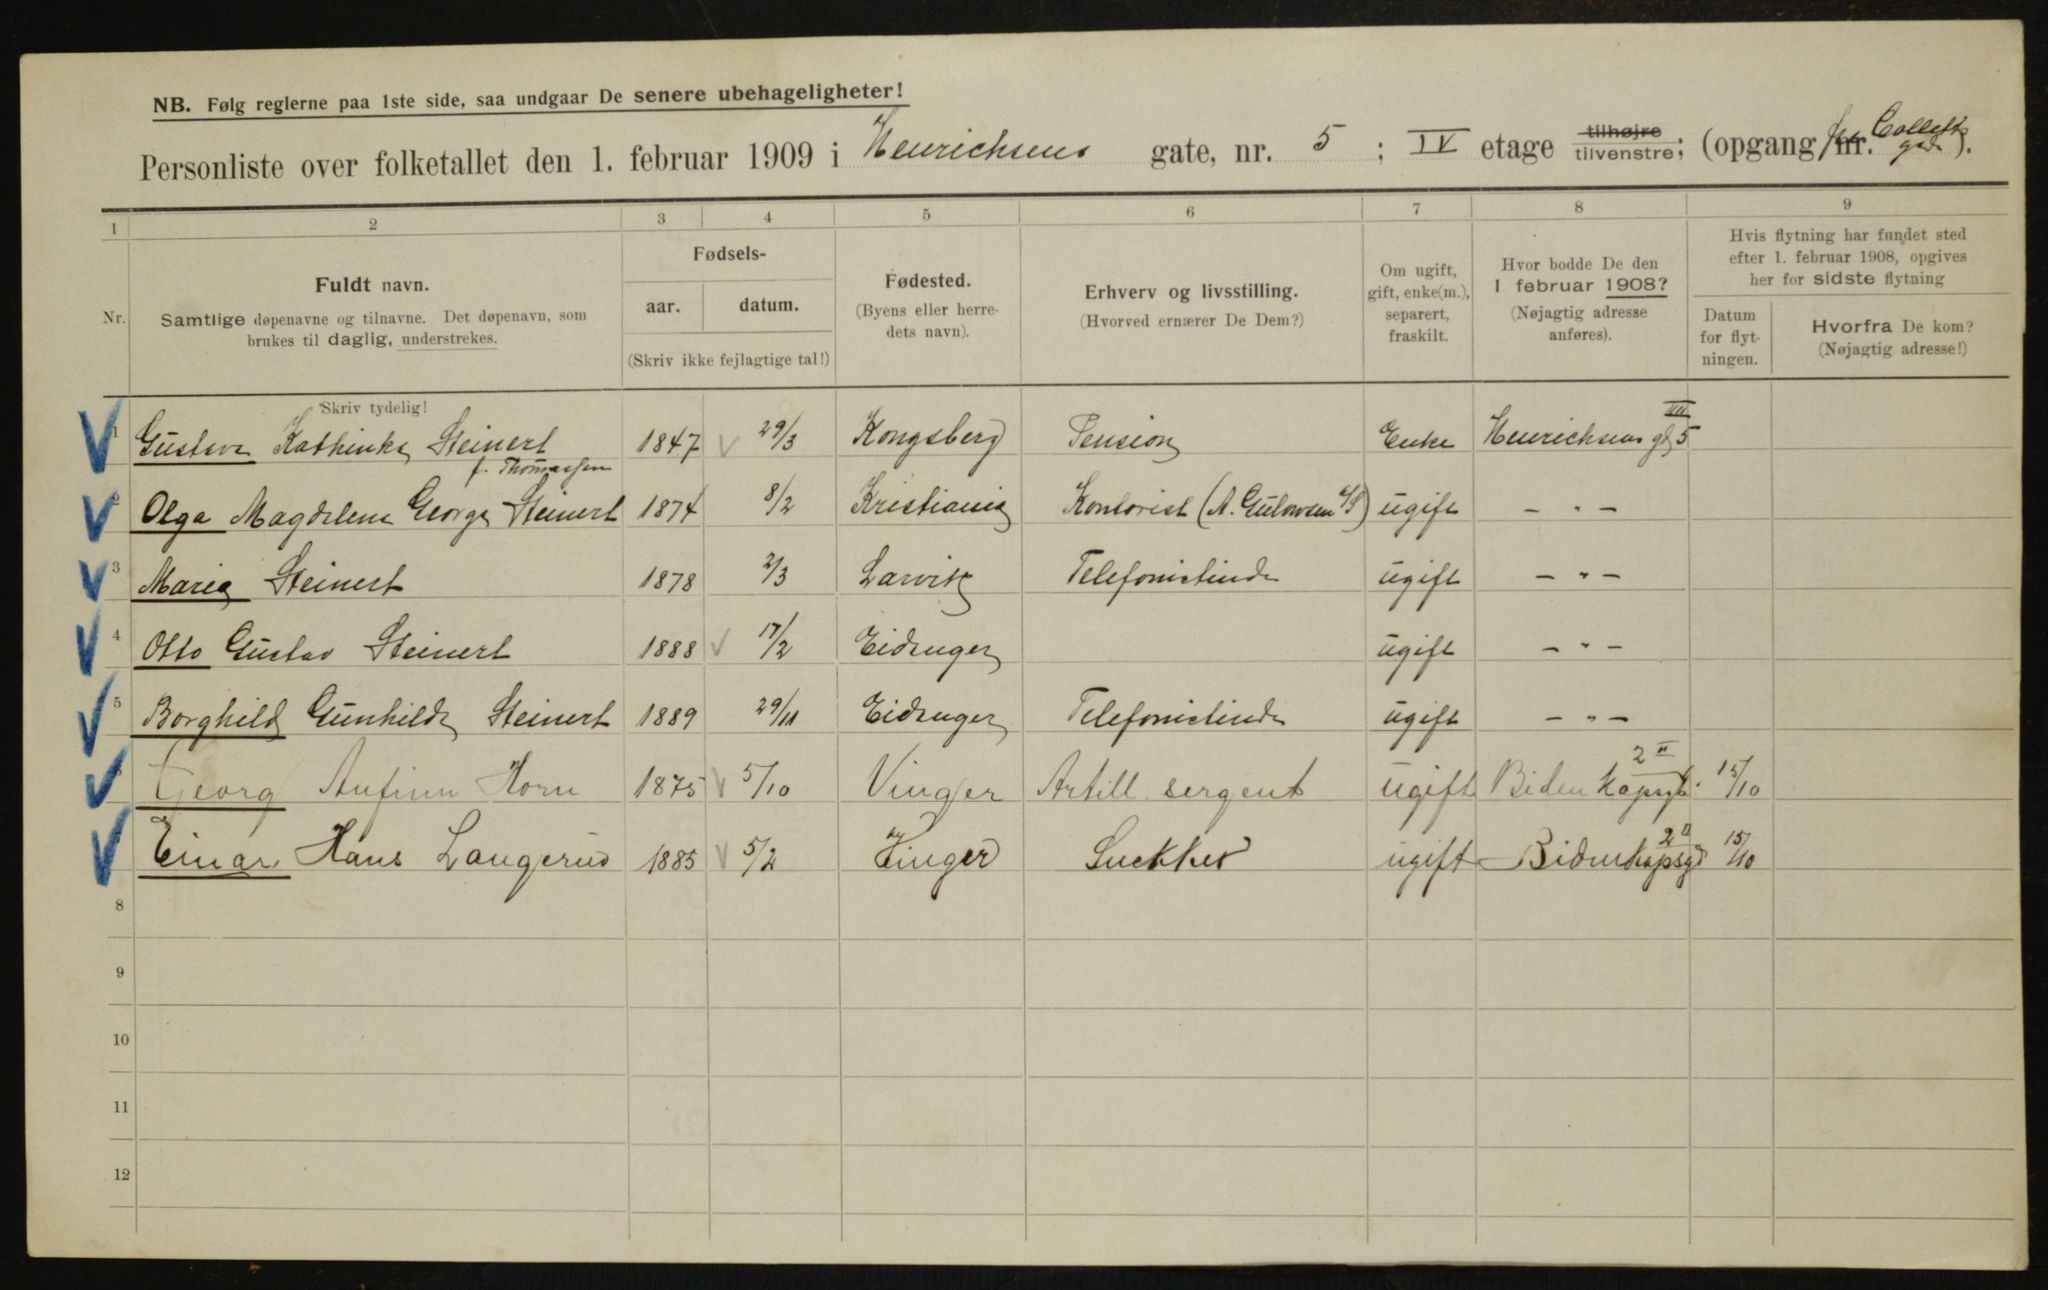 NB. Følg reglerne paa 1ste side, saa undgaar De senere ubehageligheter!
Personliste over folketallet den 1. februar 1909 i Henrichsens gate, nr. 5 ; IV etage tilhøjre tilvenstre; (opgang nr. Colletts gd.).
1 2 3 4 5 6 7 8 9
Nr.
Fuldt navn.
Samtlige døpenavne og tilnavne. Det døpenavn, som
brukes til daglig, understrekes.
Skriv tydelig!
Fødsels-
aar. datum.
(Skriv ikke fejlagtige tal!)
Fødested.
(Byens eller herre-
dets navn).
Erhverv og livsstilling.
(Hvorved ernærer De Dem?)
Om ugift,
gift, enke(m.),
separert,
fraskilt.
Hvor bodde De den
1 februar 1908?
(Nøjagtig adresse
anføres).
Hvis flytning har fundet sted
efter 1. februar 1908, opgives
her for sidste flytning
Datum
for flyt-
ningen.
Hvorfra De kom?
(Nøjagtig adresse!)
1 Gustava Kathinka Steinert 1847 29/3 Kongsberg Pension Enke Henrichsens gt 5 III
f. Thomassen
2 Olga Magdalena Georga Steinert 1874 8/2 Kristiania Kontorist (A. Gulowsen A/S) ugift — " —
3 Maria Steinert 1878 2/3 Larvik Telefonistinde ugift — " —
4 Otto Gustav Steinert 1888 17/2 Eidanger ugift — " —
5 Borghild Gunhilda Steinert 1889 29/11 Eidanger Telefonistinde ugift — " —
6 Georg Anfinn Horn 1875 5/10 Vinger Artill. sergent ugift Bidenkapsgt. 2 II 15/10
Einar Hans Langerud 1885 5/2 Vinger Snekker ugift Bidenkapsgt 2 II 15/10
8
9
10
11
12